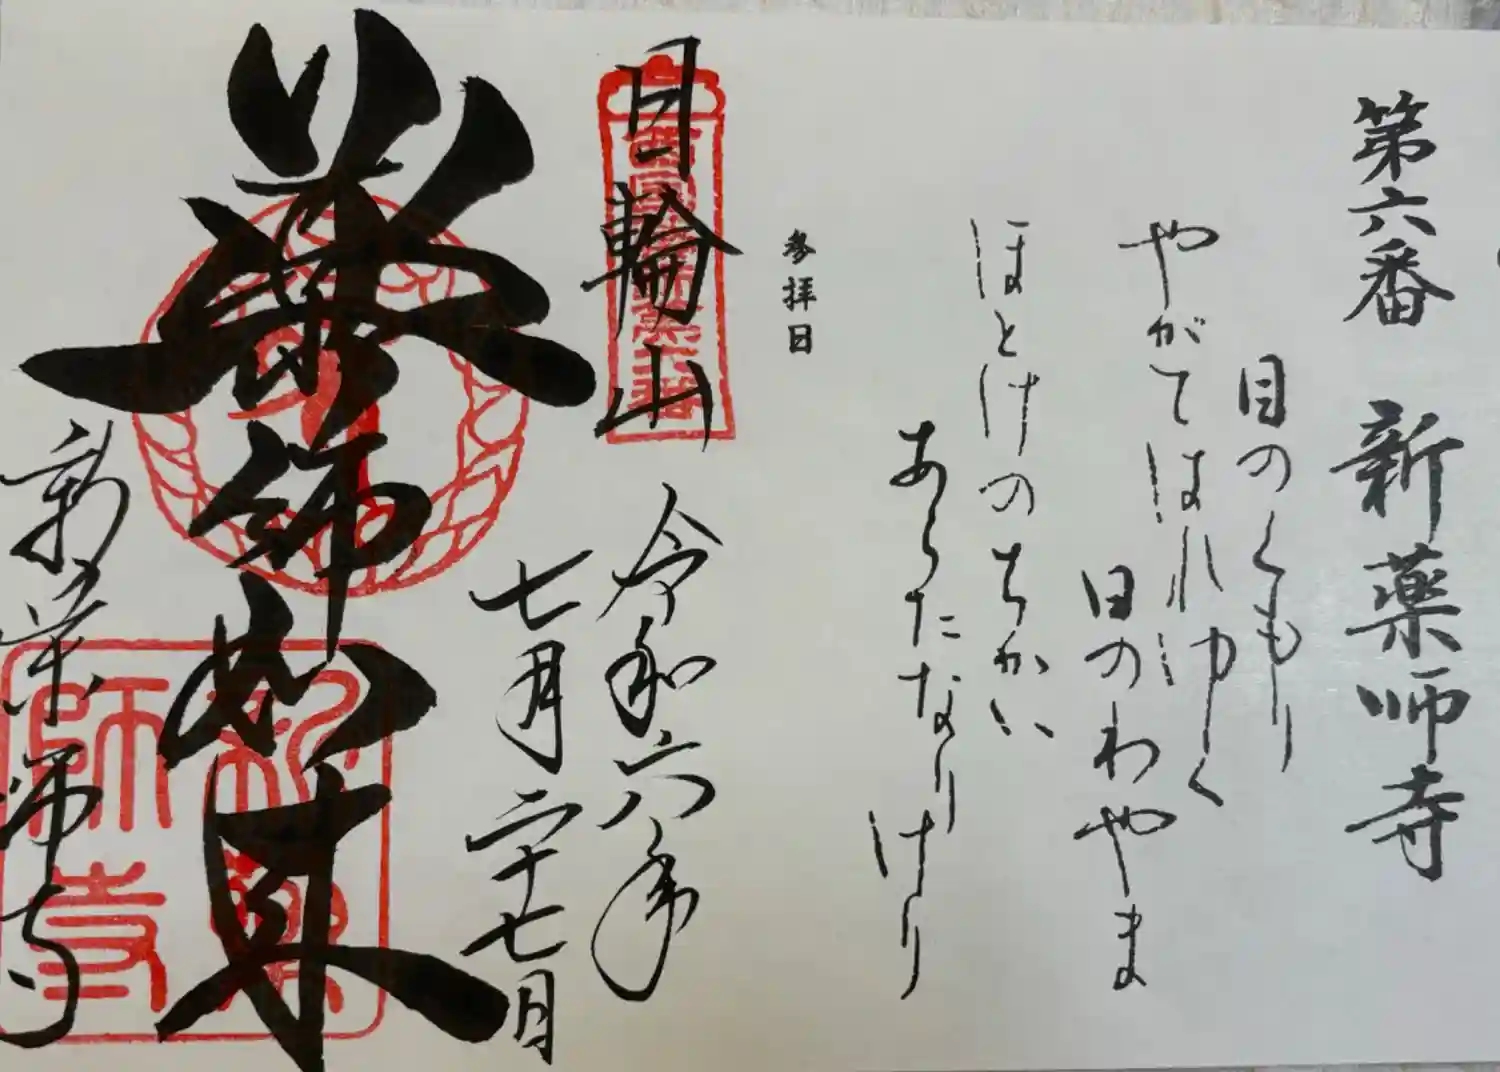 第六番 新薬師寺
目のくもり
やがてはれゆく
日のわやま
ほとけのちかい
あらたなりけり
参拝日
日輪山
令和六年
七月二十七日
薬師如来
新薬師寺
新薬師寺